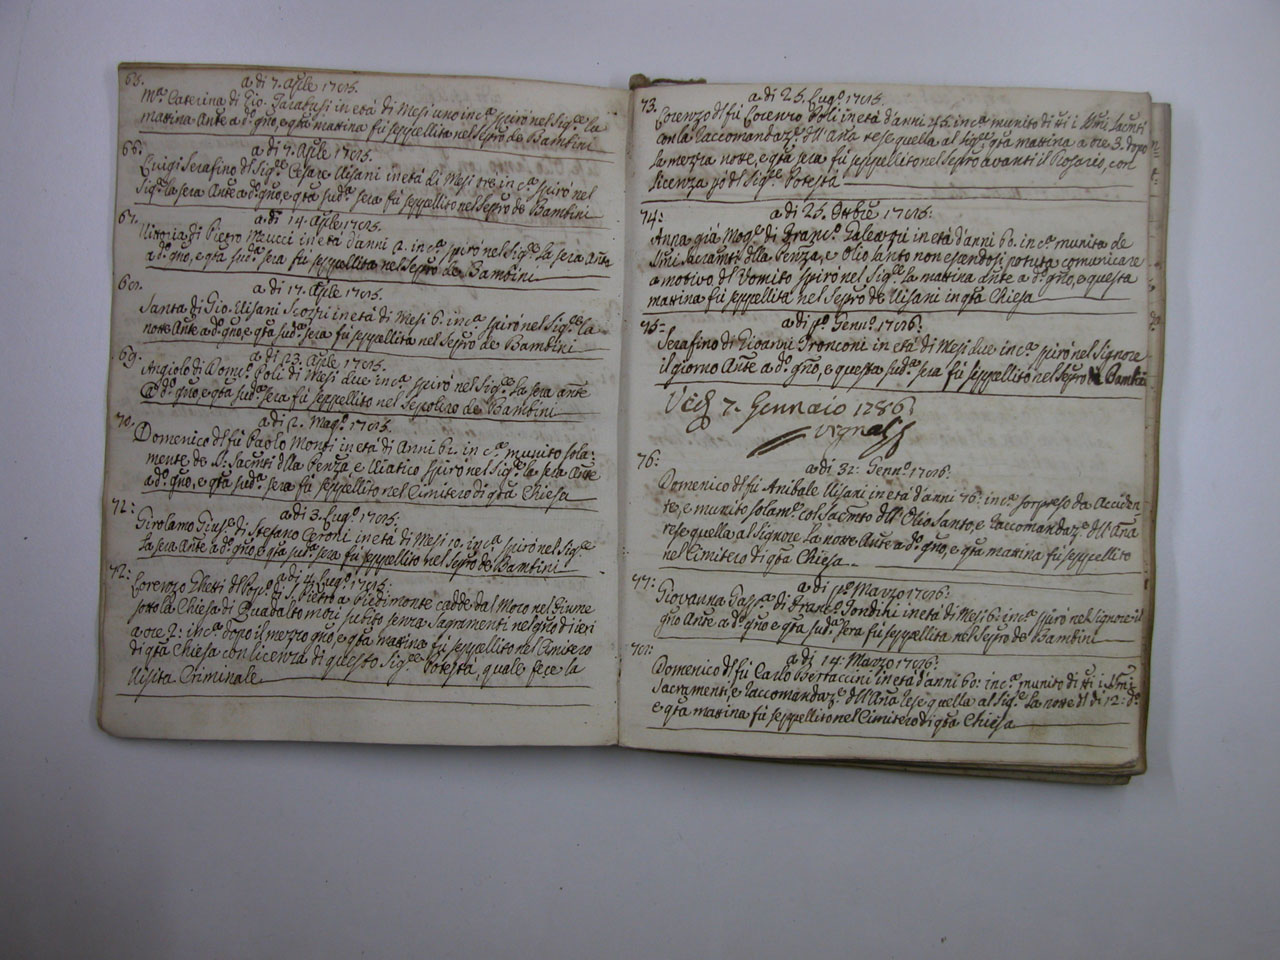 65.
a di 7. Aple 1785.
Mª. Caterina di Gio. in età di Mesi uno in cª. spirò nel Sigʳᵉ. la
mattina Ante a dº. gno, e qta mattina fù seppellita nel Sepro de Bambini
66.
a di 7. Aple 1785.
Luigi Serafino dl Sigʳ. Cesare Visani in età di Mesi tre in cª. spirò nel
Sigʳᵉ. la sera Ante a dº. gno, e qta sudª. sera fù seppellito nel Sepro de Bambini
67.
a di 14. Aple 1785.
Vittoria di Pietro in età d'anni 2. in cª. spirò nel Sigʳᵉ. la sera Ante
a dº. gno, e qta sudª. sera fù seppellita nel Sepro de Bambini
68.
a di 17. Aple 1785.
Santa di Gio. Visani Scozzi in età di Mesi 6. in cª. spirò nel Sigʳᵉ. la
notte Ante a dº. gno, e qta sudª. sera fù seppellita nel Sepro de Bambini
69.
a di 23. Aple 1785.
Angiolo di Domcº. Poli di Mesi due in cª. spirò nel Sigʳᵉ. la sera ante
a dº. gno, e qta sudª. sera fù seppellito nel Sepolcro de Bambini
70.
a di 2. Magº. 1785.
Domenico dl fù Paolo Monti in età di Anni 62. in cª. munito sola:
mente de SS. Sacmti dlla Penza e Viatico spirò nel Sigʳᵉ. la sera Ante
a dº. gno, e qta sudª. sera fù seppellito nel Cimitero di qta Chiesa
71:
a di 3. Lugº. 1785:
Girolamo Giusᵉ. di Stefano Ceroni in età di Mesi 10. in cª. spirò nel Sigʳᵉ
la sera Ante a dº. gno, e qta sudª. sera fù seppellito nel Sepro de Bambini
72:
a di 4. Lugº. 1785:
Lorenzo Ghetti dl Popº. di S. Pietro a Piedimonte cadde dal Moro nel fiume
sotto la Chiesa di Quadalto morì subito senza Sagramenti nel gno di ieri
a ore 2: in cª. dopo il mezzo gno, e qta mattina fù seppellito nel Cimitero
di qta Chiesa con licenza di questo Sigʳᵉ. Potestà, quale fece la
Visita Criminale
73.
a di 25. Lugº. 1785.
Lorenzo dl fù Lorenzo Poli in età d'anni 45. in cª. munito di tti i SSmi Sacmti
con la Raccomandazᵉ. dll'Ana rese quella al Sigʳᵉ. qta mattina a ore 3. dopo
la mezza notte, e qta sera fù seppellito nel Sepro avanti il Rosario, con
licenza pò dl Sigʳᵉ. Potestà
74:
a di 25. Ottbre 1785:
Anna già Mogᵉ. di Francº. Galeazzi in età d'anni 60. in cª. munita de
SSmi Sacamti dlla Penza, e Olio Santo non essendosi potuta comunicare
a motivo dl Vomito spirò nel Sigʳᵉ. la mattina ante a dº. gno, e questa
mattina fù seppellita nel Sepro de Visani in qta Chiesa
75:
a di pº. Gennº. 1786:
Serafino di Gioanni Tronconi in età di Mesi due in cª. spirò nel Signore
il giorno Ante a dº. gno, e questa sudª. sera fù seppellito nel Sepro de Bambini
7. Gennaio 1786
76:
a di 31: Gennº. 1786:
Domenico dl fù Anibale Visani in età d'anni 76: in cª. sorpreso da Acciden-
te, e munito solamᵉ. col Sacmto dll'Olio Santo e Raccomandazᵉ. dll'Ana
rese quella al Signore la notte Ante a dº. gno, e qta mattina fù seppellito
nel Cimitero di qta Chiesa
77:
a di pº. Marzo 1786:
Giovanna di Francº. in età di Mesi 6: in cª. spirò nel Signore il
gno Ante a dº. gno e qta sudª. sera fù seppellita nel Sepro de Bambini
78:
a di 14: Marzo 1786:
Domenico dl fù Carlo Bertaccini in età d'anni 60: in cª. munito di tti i SSmi
Sacramenti, e Raccomandazᵉ. dll'Ana rese quella al Sigʳᵉ. la notte dl di 12: dº.
e qta mattina fù seppellito nel Cimitero di qta Chiesa